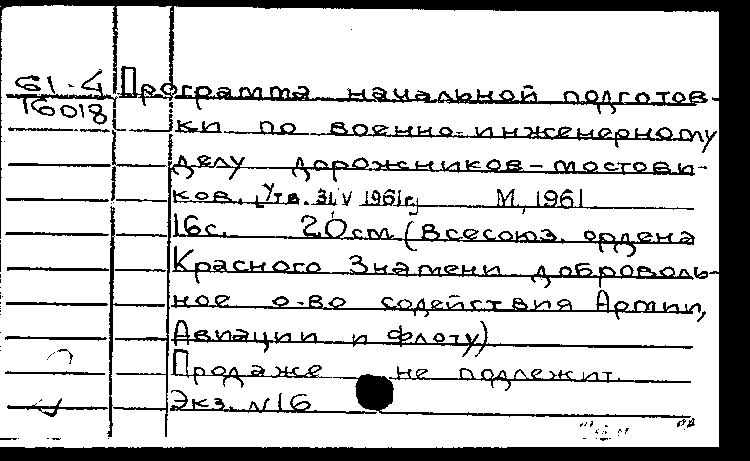 61-4 Программа начальной подготов-
16018
ки по военно-инженерному
делу дорожников-мостови-
ков. [Утв. 31.V 1961г.] М., 1961
16с. 20см (Всесоюз. ордена
Красного Знамени доброволь-
ное о-во содействия Армии,
Авиации и Флоту)
Продаже не подлежит.
Экз. N16